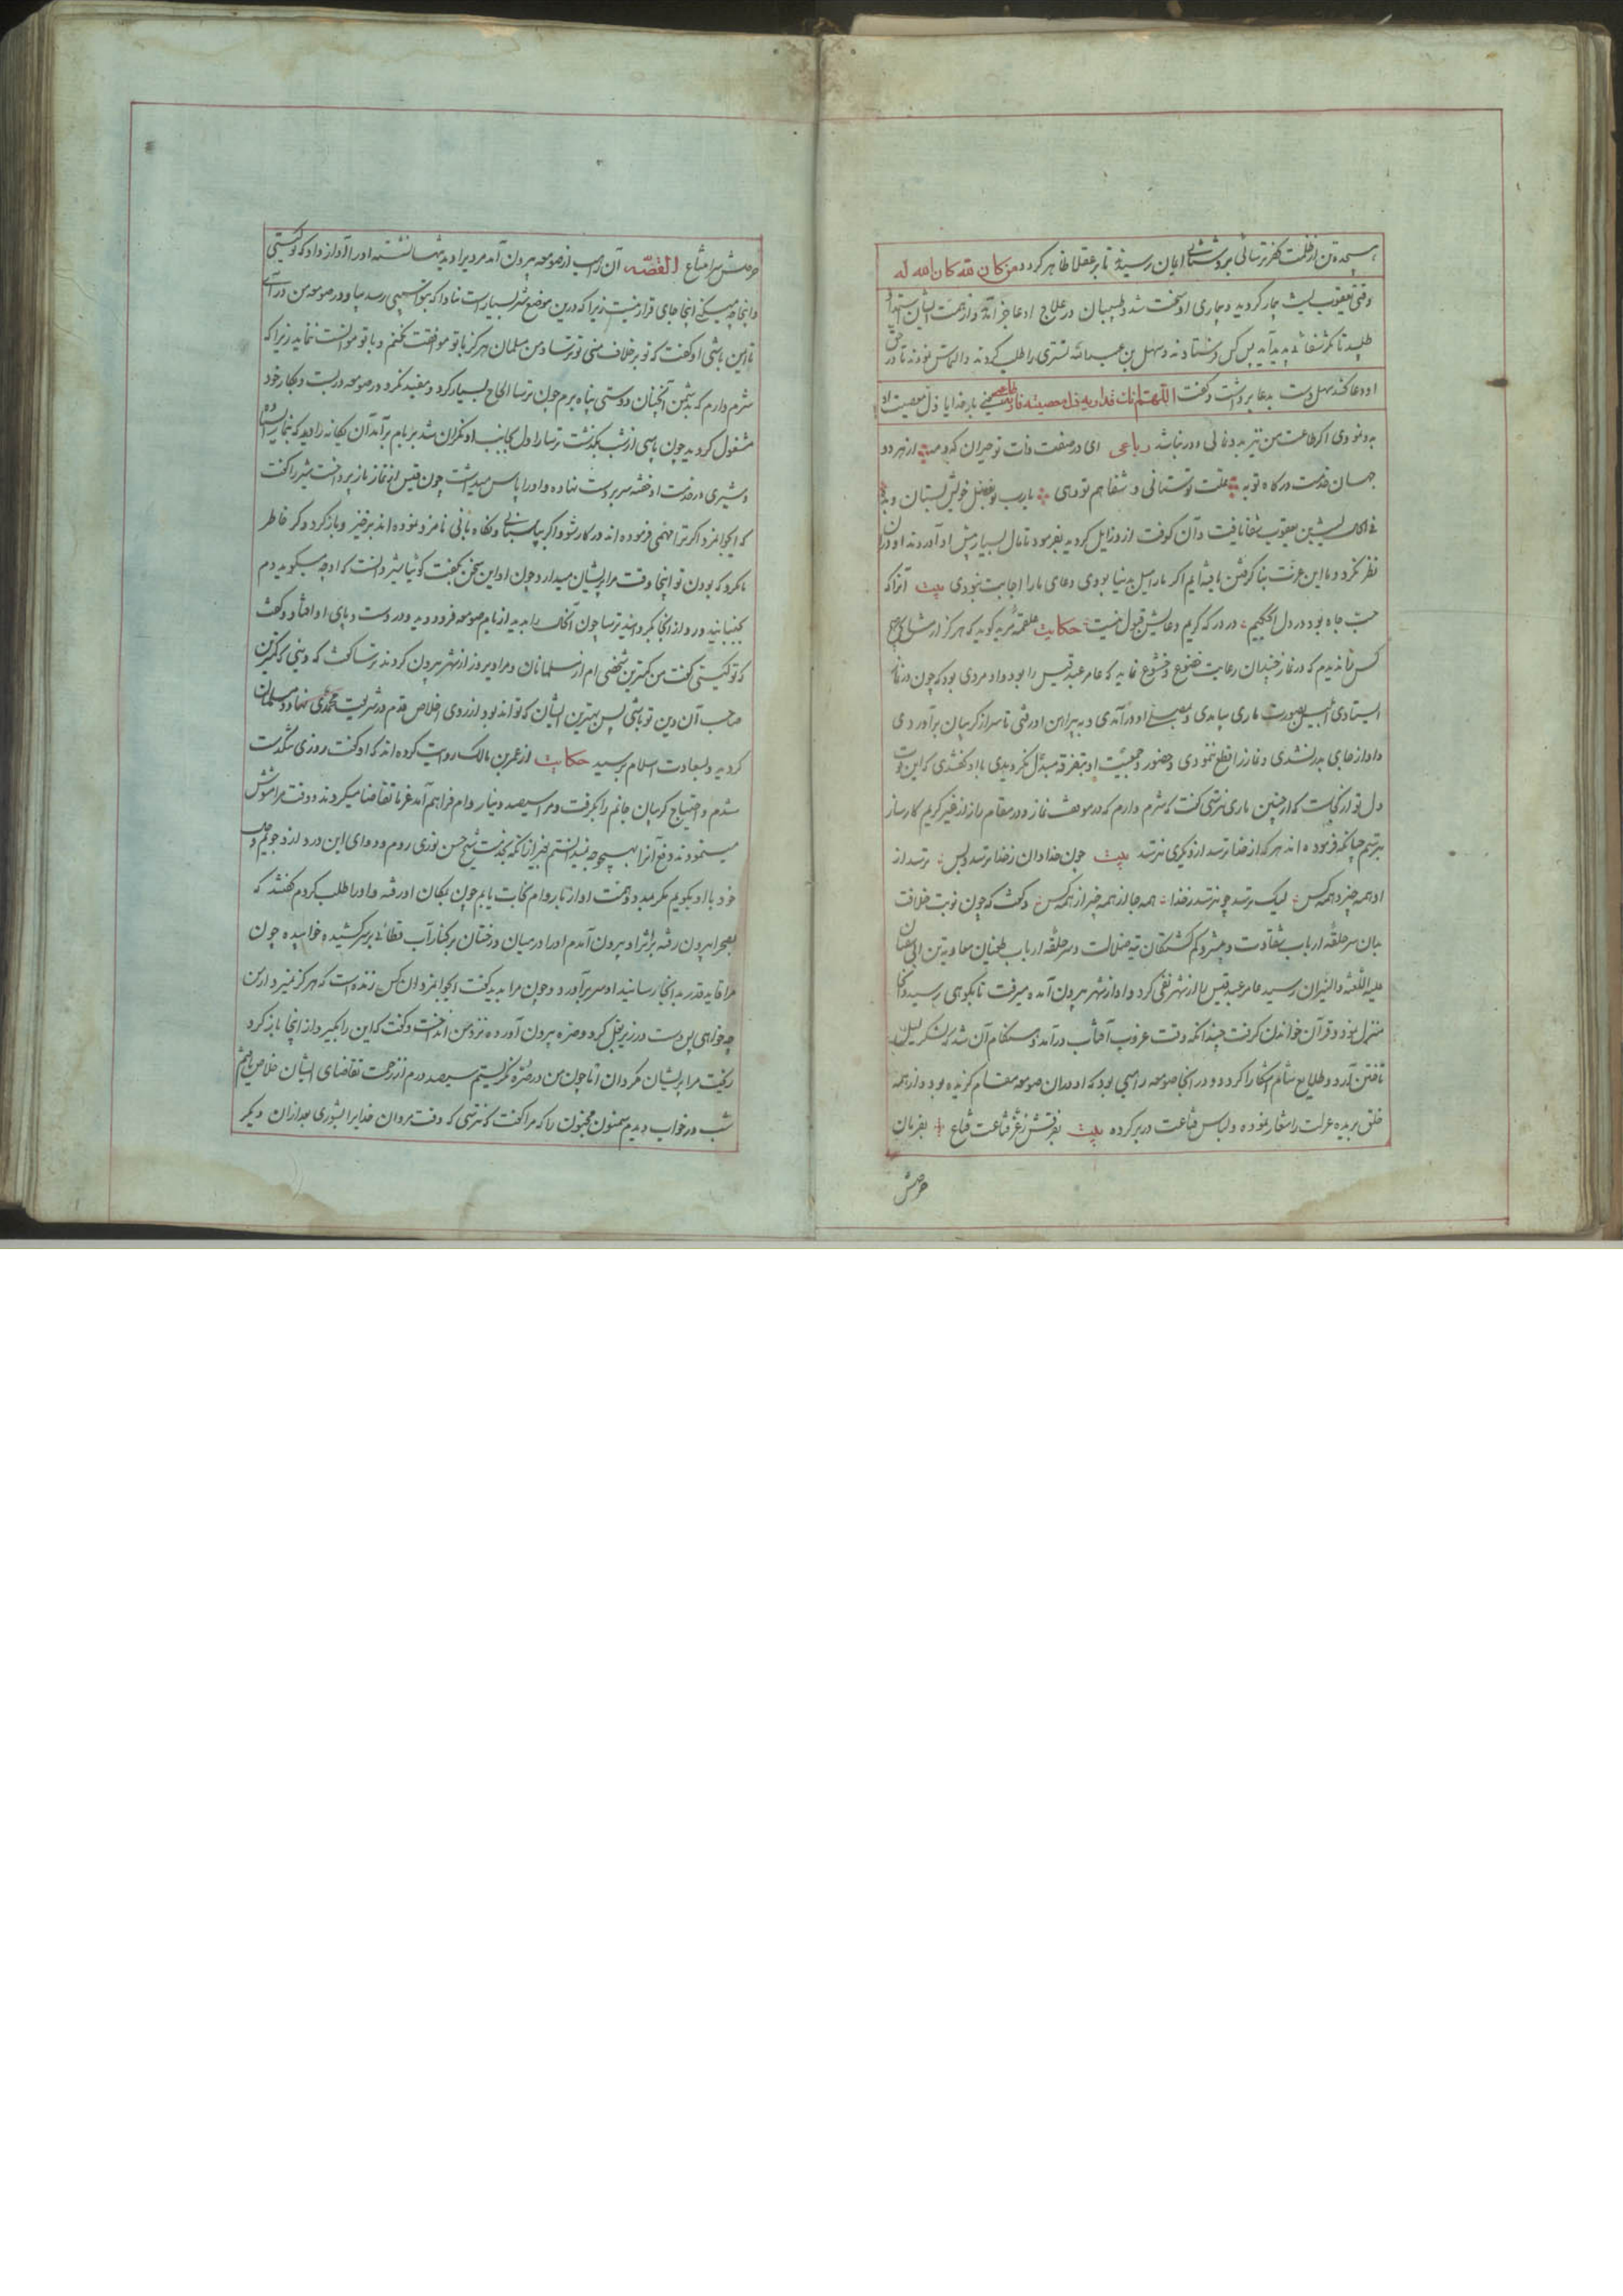 هیجده تن از ظلمت کفر ترسائی بروشنائی ایمان رسیدند تا بر عقلا ظاهر گردد من کان لله کان الله له
وقتی یعقوب لیث بیمار گردید و بیماری او سخت شد و طبیبان در علاج او عاجز آمدند و از همت ایشان استمداد
طلبید تا مگر شفائی پدید آید پس کس فرستادند و سهل بن عبدالله تستری را طلب کردند و التماس نمودند تا در حق
او دعا کند سهل دست بدعا برداشت و گفت اللهم انت قد اریته ذل معصیته فاره عز طاعته یعنی بار خدایا ذل معصیت او
بدو نمودی اگر طاعت من نیز بدو نمائی دور نباشد رباعی ای در صفت ذات تو حیران که و مه از هر دو
جهان خدمت درگاه تو به علت تو ستانی و شفا هم تو دهی یارب تو بفضل خویش بستان و بده
فی الحال لیث بن یعقوب شفا یافت و آن کوفت از وزایل گردید بفرمود تا مال بسیار پیش او آوردند او در آن
نظر نکرد و ما این عزت بنا گرفتن یافته‌ایم اگر ما را میل بدنیا بودی دعای ما را اجابت نبودی بیت آنرا که
حب جاه بود در دل ای حکیم در درگه کریم دعایش قبول نیست حکایت علقمه مرید گوید که هرگز از مشایخ
کس را ندیدم که در نماز چندان رعایت خضوع و خشوع نماید که عامر عبد قیس را بود و او مردی بود که چون در نماز
ایستادی ابلیس بصورت ماری بیامدی و بمصلای او درآمدی و به پیراهن او رفتی تا سر از گریبان برآوردی
و او از جای بدر نشدی و نماز را قطع ننمودی و حضور و جمعیت او بتفرقه مبدل نگردیدی با او گفتندی که این قوت
دل تو از کجاست که از چنین ماری نترسی گفت که شرم دارم که در موقف نماز و در مقام راز از غیر کریم کارساز
بترسم چنانکه فرموده‌اند هر که از خدا ترسد از دیگری نترسد بیت چون خدادان ز خدا ترسد و بس ترسد از
او همه چیز و همه کس لیک ترسد چو نترسد ز خدا همه جا از همه چیز از همه کس و گفت که چون نوبت خلافت
بآن سر حلقه ارباب شقاوت و پیشرو گم گشتگان تیه ضلالت و سر حلقه ارباب طغیان معاویة بن ابی سفیان
علیه اللعنة والنیران رسید عامر عبد قیس را از شهر نفی کرد و او از شهر بیرون آمده میرفت تا بکوهی رسید و آنجا
منزل نمود و قرآن خواندن گرفت چندانکه وقت غروب آفتاب درآمد و هنگام آن شد که لشکر لیل
تاختن آرد و طلایع شام آشکارا کرد و در آنجا صومعه راهبی بود که او در آن صومعه مقام گزیده بود و از همه
خلق بریده عزلت را شعار نموده و لباس قناعت در بر کرده بیت نفرقش ز غز قناعت قناع بفرمان
حرصش
حرصش سر امتناع القصه آن راهب از صومعه بیرون آمد مردی را دید تنها نشسته او را آواز داد که تو کیستی
و اینجا چه میکنی اینجا جای قرار نیست زیرا که درین موضع شیر بسیار است مبادا که بتو آسیبی رسد بیا و در صومعه من درآی
تا ایمن باشی او گفت که تو بر خلاف منی تو ترسا و من مسلمان هرگز با تو موافقت نکنم و با تو موانست ننماید زیرا که
شرم دارم که بدشمن آنچنان دوستی پناه برم چون ترسا الحاح بسیار کرد و مفید نگردد در صومعه در بست و بکار خود
مشغول گردید چون پاسی از شب بگذشت ترسا را دل بجانب او نگران شد بر بام برآمد آن یگانه را دید که بنماز ایستاده
و شیری در خدمت او خفته سر بر دست نهاده و او را پاس میداشت چون قیس از نماز باز پرداخت شیر را گفت
که ایجوانمرد اگر ترا مهمی فرموده‌اند در کار شو و اگر بپاسبانی و نگاه بانی نامزد نموده‌اند برخیز و باز گرد و گر خاطر
ما گرد که بودن تو اینجا وقت مرا پریشان میدارد چون او این سخن بگفت گوئیا شیر دانست که او چه میگوید دم
بجنبانید و رو از آنجا بگردانید ترسا چون آنحال را بدید از بام صومعه فرو دوید و در دست و پای او افتاد و گفت
که تو کیستی گفت من کمترین شخصی‌ام از مسلمانان و مرا دیروز از شهر بیرون کردند ترسا گفت که دینی که کمترین
صاحب آن دین تو باشی پس بهترین ایشان که تواند بود از روی اخلاص قدم در شریعت محمدی نهاد و مسلمان
گردید و بسعادت اسلام برسید حکایت از عمر بن مالک روایت کرده‌اند که او گفت روزی تنگدست
شدم و احتیاج گریبان جانم را بگرفت و مرا سیصد دینار وام فراهم آمد غرما تقاضا میکردند و وقت مرا مشوش
مینمودند و دفع آنرا بهیچوجه نمیدانستم بغیر از آنکه بخدمت شیخ حسن نوری روم و دوای این درد ازو جویم و حال
خود با او بگویم مگر بمدد و همت او از بار وام نجات یابم چون بمکان او رفته و او را طلب کردم گفتند که
بصحرا بیرون رفته بر اثر او بیرون آمدم او را در میان درختان بر کنار آب قطائی بر سر کشیده خوابیده چون
مرا قاید قدر بدانجا رسانید او سر برآورد و چون مرا بدید گفت ایجوانمرد آن کس زنده است که هرگز نمیرد از من
چه خواهی پس دست در زیر بغل کرد و صره بیرون آورده نزد من انداخت و گفت که این را بگیر و از اینجا باز گرد
وقت مرا پریشان مگردان اما چون من در صره نگریستم سیصد درم از زحمت تقاضای ایشان خلاص یافتم
شب در خواب دیدم سمنون مجنون را که مرا گفت که نترسی که وقت مردان خدا برا بشوری بعد از آن دیگر